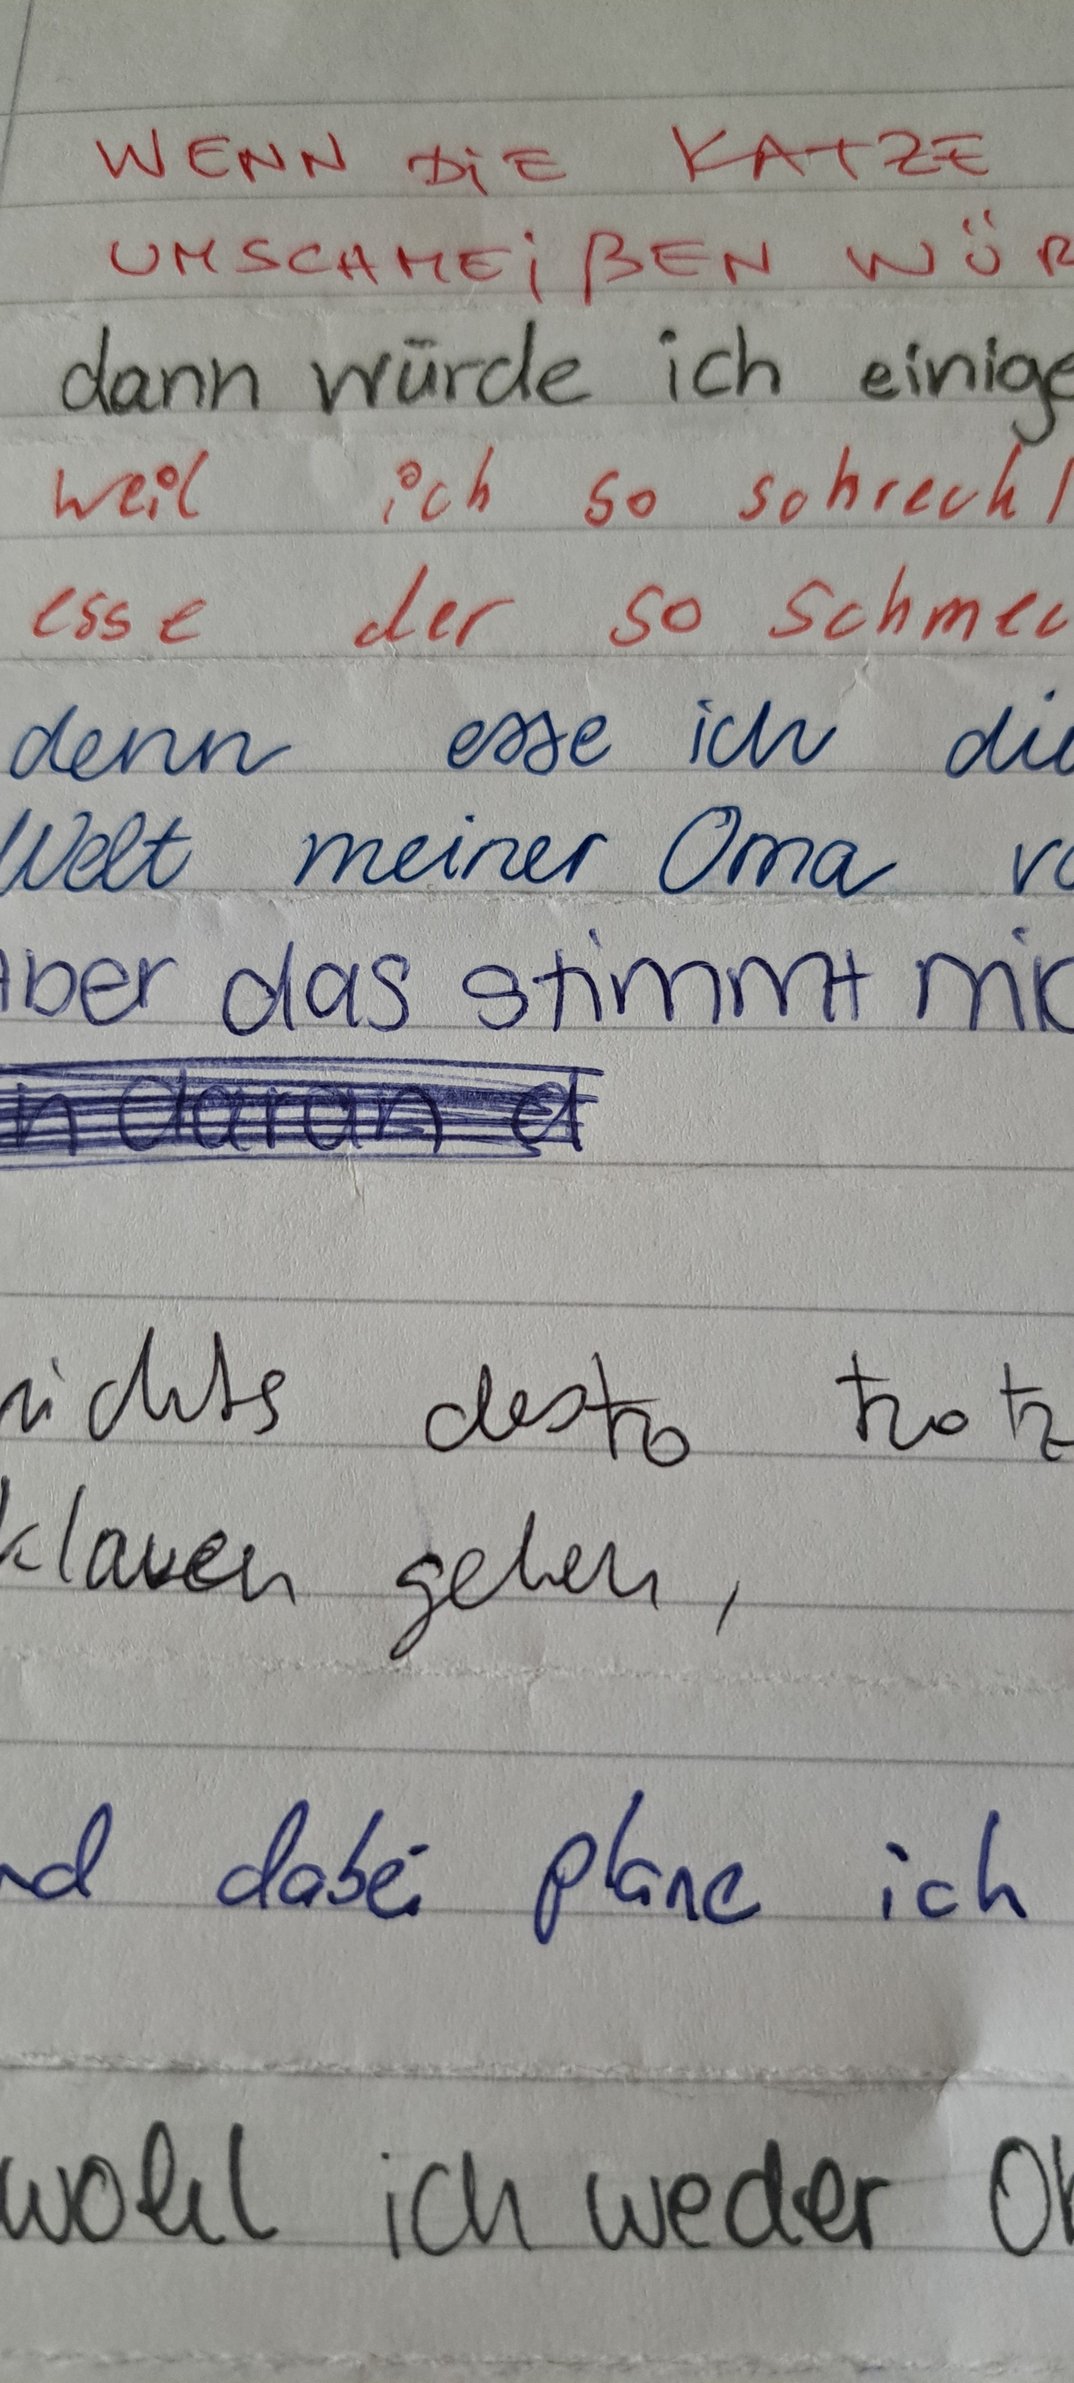 WENN DiE KATZE
UMSCHMEißEN WÜR
dann würde ich einige
weil ich so schreckl
esse der so schmec
denn esse ich die
Welt meiner Oma vo
Aber das stimmt mic
n daran d
nichts desto trotz
klauen gehen,
nd dabei plane ich
wohl ich weder Oh